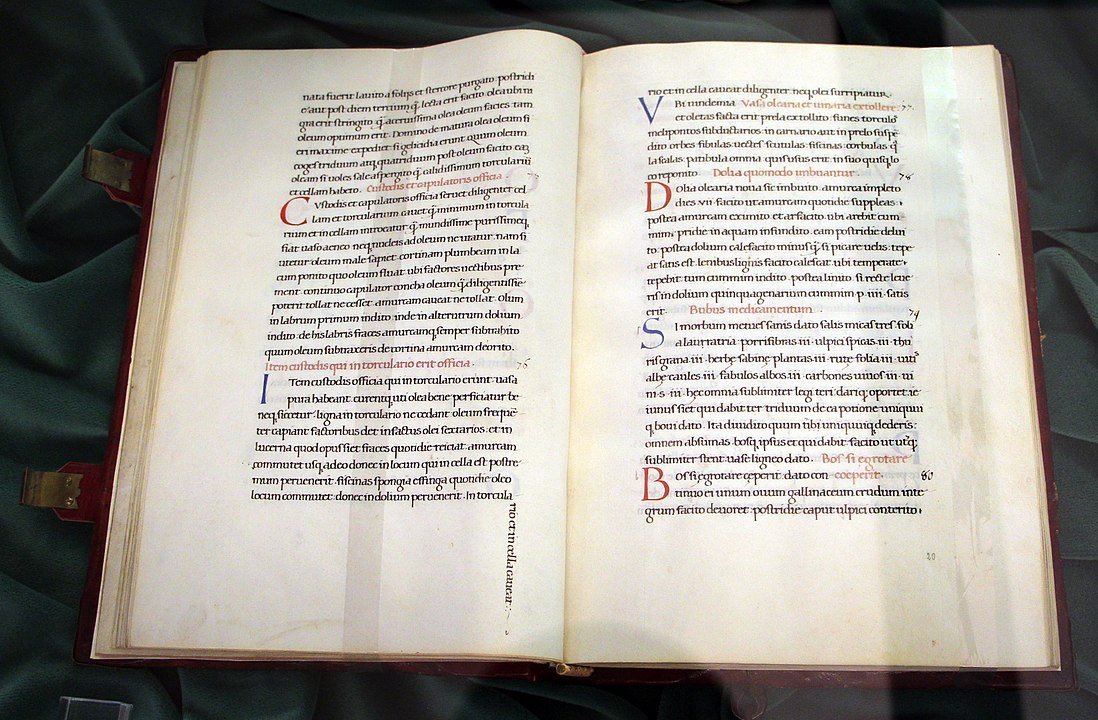 nata fuerit lauito a foliis et stercore purgato postridi
e aut post diem tertium q̃ lecta erit facito olea ubi ni
gra erit stringito q̃ acerbissima olea oleum facies tam
oleum optimum erit Domino de matura olea oleum fi
eri maxime expediet si gelicidia erunt quum oleum
coges triduum atq quatriduum post oleum facito eaz
oleam si uoles sale aspergito q̃ calidissimum torculariũ
et cellam habeto. Custodis et capulatoris officia .
Cvstodis et capulatoris officia seruet diligenter cel
lam et torcularium cauet q̃ minimum in torcula
rium et in cellam introeatur q̃ mundissime purissimeq
fiat uaso aeneo neq nucleis ad oleum ne utatur nam si
utetur oleum male sapiet cortinam plumbeam in la
cum ponito quo oleum fluat ubi factores uectibus pre
ment continuo capulator concha oleum q̃ diligentissie
poterit tollat ne cesset amurcam caueat ne tollat Olum
in labrum primum indito inde in alterum dolium
indito de his labris fraces amurcamq semper subtrahito
quum oleum subtraxeris de cortina amurcam deorito
Item custodis qui in torculario erit officia . 76
ITem custodis officia qui in torculario erunt uasa
pura habeant curentq uti olea bene perficiatur be
neq siccetur ligna in torculario ne cedant oleum frequẽ
ter capiant factoribus det in factus olei sextarios et in
lucerna quod opus siet fraces quotidie reiciat amurcam
commutet usq adeo donec in locum qui in cella est postre
mum peruenerit fiscinas spongia effinga quotidie oleo
locum commutet donec in dolium peruenerit In torcula
rio et in cella caueat
rio et in cella caueat diligenter neq olei surripiatur
Vbi uindemia Vasa olearia et uinaria extollere . 77
et oletas facta erit prela extollito funes torculos
meliponto
dito orbes fibulas uectes scutulas fiscinas corbulas q̃
la scalas patibula omnia quis usus erit in suo quisq lo
co reponito Dolia quomodo imbuantur . 78
Dolia olearia noua sic imbuito amurca impleto
dies vii facito ut amurcam quotidie suppleas
postea amurcam eximito et arfacito ubi arebit cum
mim pridie in aquam infundito eam postridie delui
to postea dolium calefacito minus q̃ si picare uelis tepe
at satis est lenibus lignis facito calescat ubi temperate
tepebit tum cummim indito postea linito si recte leue
ris in dolium quinquagenarium cummim p iiii satis
erit Bubus medicamentum . 79
SI morbum metues sanis dato salis micas tres foli
a laurea tria porri fibras iii ulpici spicas iii thu
ris grana iii herbe sabine plantas iii rute folia iii uitis
albe caules iii fabulos albos iii carbones uiuos iii ui
ni s iii hec omnia sublimiter legi teri dariq oportet ie
iunus siet qui dabit ter triduum de ea potione unicuiq
q boui dato Ita diuidito quum tibi unicuiq dederis
omnem absumas bosq ipsus et qui dabit facito ut utq̃
sublimiter stent uase ligneo dato . Bos si egrotare
Bos si egrotare ceperit dato con coeperit . 80
tinuo ei unum ouum gallinaceum crudum inte
grum facito deuoret postridie caput ulpici conterito
20